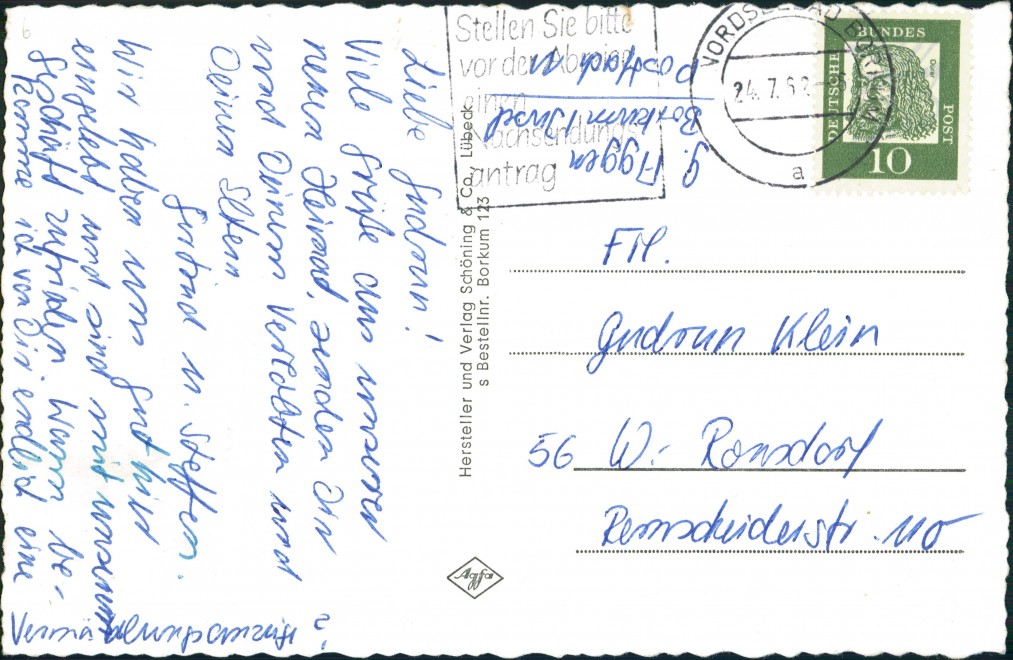 Liebe Gudrun!
Viele Grüße aus unserer
neuen Heimat, senden Dir
und Deinem Verlobten und
Deinen Eltern
Gertrud u. Steffen.
Wir haben uns gut hier
eingelebt und sind mit unserem
Geschäft zufrieden. Wann be-
komme ich von Dir endlich eine
Vermählungsanzeige?
G. Aggen
Borkum/Insel
Postfach
Stellen Sie bitte
vor der Abreise
einen
Nachsendungs-
antrag
NORDSEEBAD BORKUM
24.7.62
a
DEUTSCHE BUNDESPOST
10
Hersteller und Verlag Schöning & Co., Lübeck
s Bestellnr. Borkum 123
Agfa
Frl.
Gudrun Klein
56 W.- Ronsdorf
Remscheiderstr. 110
6